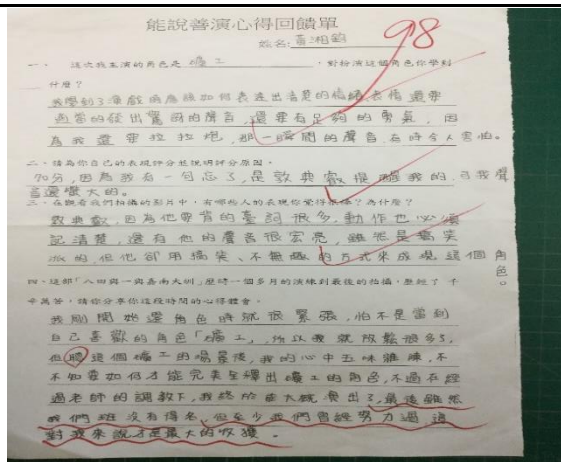 能說善演心得回饋單
姓名:黃湘鈞
98
一、 這次我主演的角色是 礦工 ,對扮演這個角色你學到
什麼?
我學到了演戲時應該如何表達出清楚的情緒表情還要
適當的發出驚呼的聲音,還要有足夠的勇氣,因
為我還要拉拉炮,那一瞬間的聲音有時令人害怕。
二、請為你自己的表現評分並說明評分原因。
90分,因為我有一句忘了,是敦典歡提醒我的,可我聲
音還蠻大的。
三、在觀看我們拍攝的影片中,有哪些人的表現你覺得很棒?為什麼?
敦典歡,因為他要背的臺詞很多,動作也必須
記清楚,還有他的聲音很宏亮,雖然是搞笑
派的,但他卻用搞笑、不無趣的方式來成現這個角
色。
四、這部「八田與一與嘉南大圳」歷時一個多月的演練到最後的拍攝,歷經了 千
辛萬苦,請你分享你這段時間的心得體會。
我剛開始選角色時就很緊張,怕不是當到
自己喜歡的角色「礦工」,所以我就放鬆很多了,
但聽這個礦工的場景後,我的心中五味雜陳,不
不知要如何才能完美全釋出礦工的角色,不過在經
過老師的調教下,我終於能大概演出了,最後雖然
我們班沒有得名,但至少我們曾經努力過,這
對我來說才是最大的收獲。